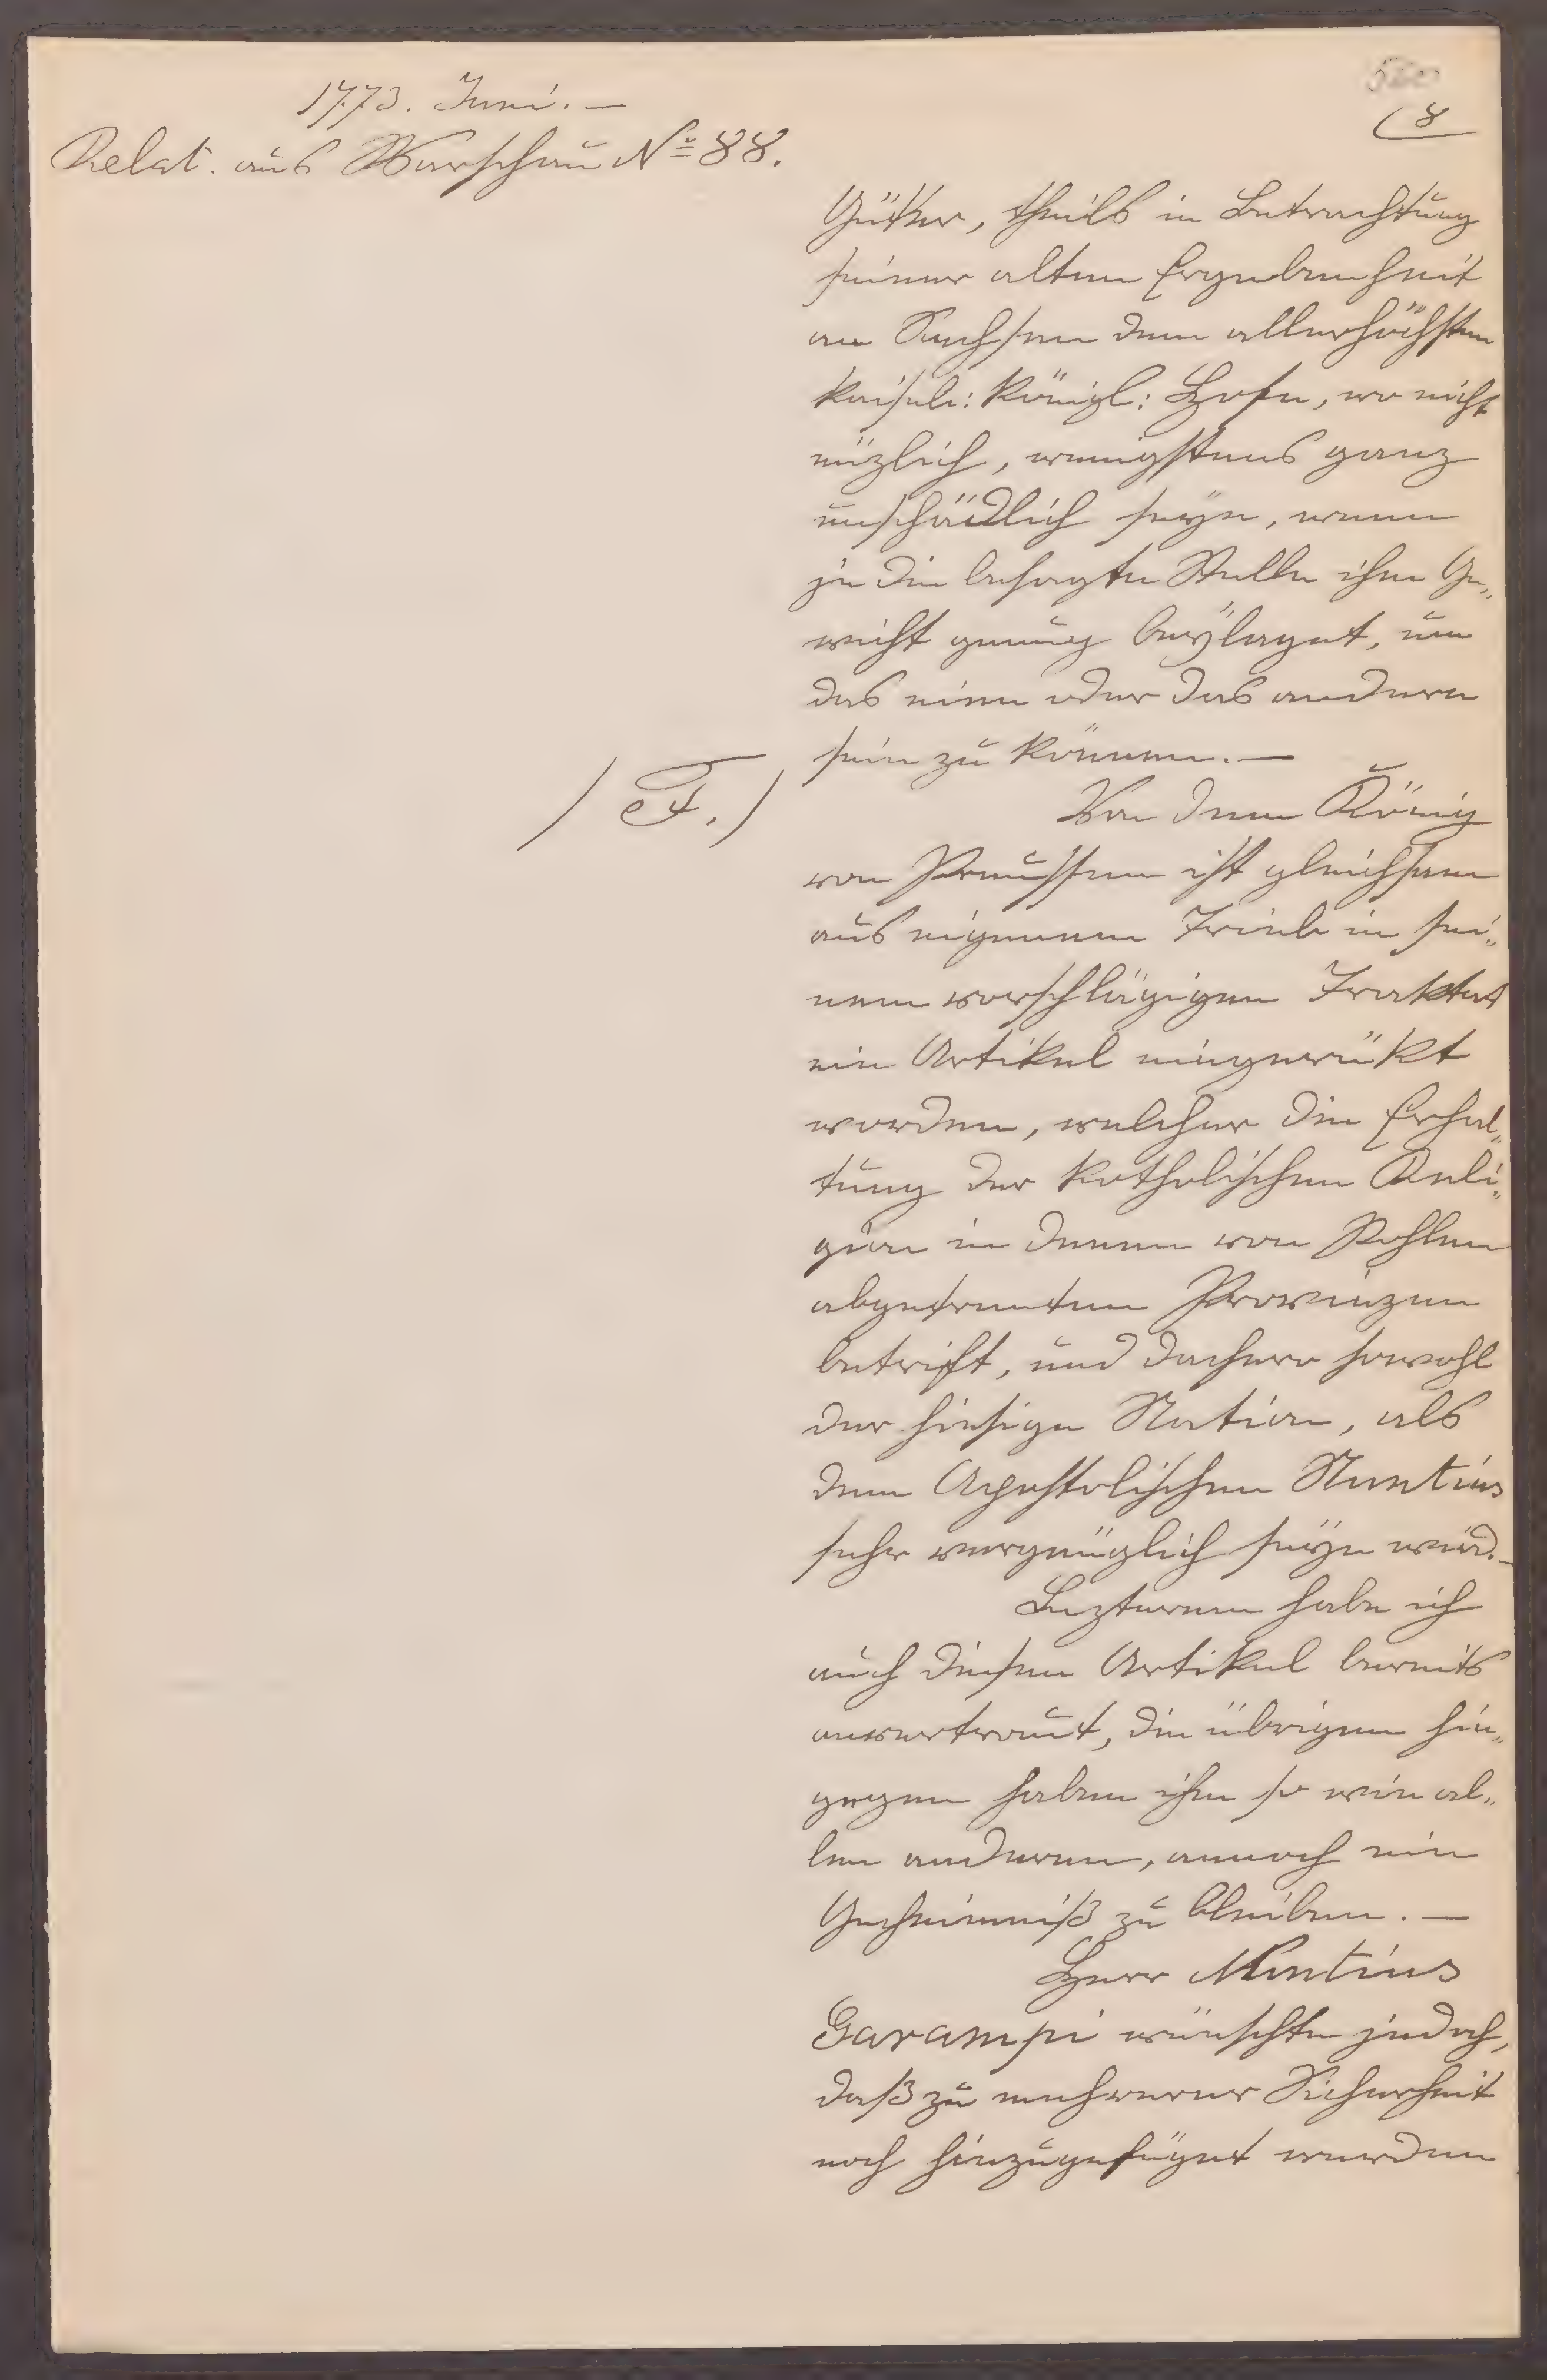 1773. Juni. —
Relat. aus Warschau No 88.
(8
Güter, theils in Betrachtung
seiner alten Ergebenheit
an Sachsen dem allerhöchsten
kaiserl: königl: Hofe, wo nicht
nüzlich, wenigstens ganz
unschädlich seÿn, wenn
je die besagte Stelle ihm Ge„
wicht genug beÿleget, um
das eine oder das andere
sein zu können. —
/ F. /
Von dem König
von Preussen ist gleichsam
aus eigenem Triebe in sei„
nem vorschlägigen Traktat
ein Artikel eingerükt
worden, welcher die Erhal„
tung der katholischen Reli„
gion in denen von Pohlen
abgetrennten Provinzen
betrift, und dahero sowohl
der hiesige Nation, als
dem Apostolischen Nuntius
sehr vergnüglich seÿn wird. —
Lezterem habe ich
auch diesen Artikel bereits
anvertraut, die übrigen hin„
gegen haben ihm so wie al„
len anderen, annoch ein
Geheimniß zu bleiben. —
Herr Nuntius
Garampi wünschte jedoch,
daß zu mehrerer Sicherheit
noch hinzugefüget werden